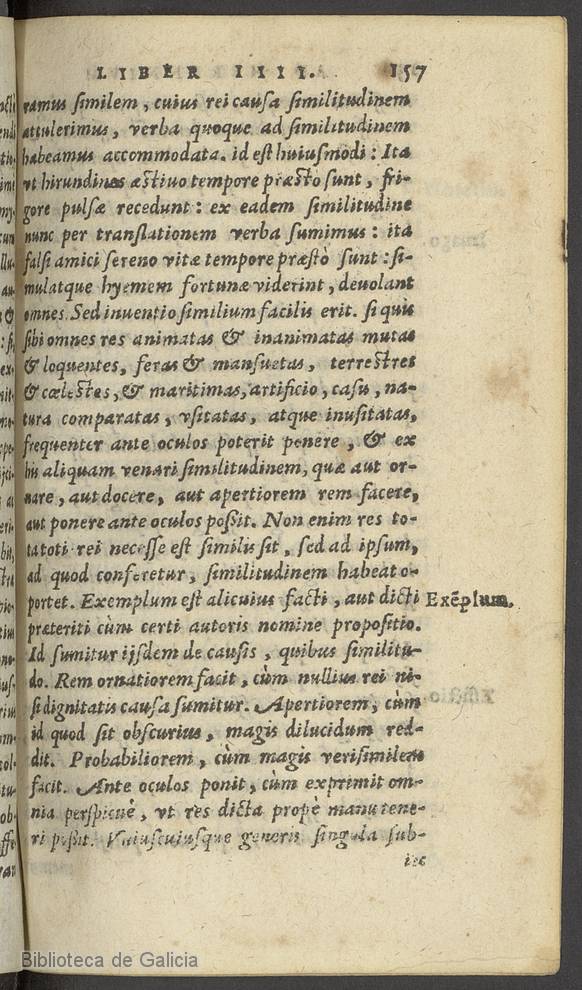 LIBER IIII. 157
ramus similem, cuius rei causa similitudinem
attulerimus, verba quoque ad similitudinem
habeamus accommodata. id est huiusmodi: Ita
vt hirundines æstiuo tempore præsto sunt, fri-
gore pulsæ recedunt: ex eadem similitudine
nunc per translationem verba sumimus: ita
falsi amici sereno vitæ tempore præstò sunt: si-
mulatque hyemem fortunæ viderint, deuolant
omnes. Sed inuentio similium facilis erit. si quis
sibi omnes res animatas & inanimatas mutas
& loquentes, feras & mansuetas, terrestres
& cœlestes, & maritimas, artificio, casu, na-
tura comparatas, vsitatas, atque inusitatas,
frequenter ante oculos poterit ponere, & ex
his aliquam venari similitudinem, quæ aut or-
nare, aut docere, aut apertiorem rem facere,
aut ponere ante oculos possit. Non enim res to-
ta toti rei necesse est similis sit, sed ad ipsum,
ad quod conferetur, similitudinem habeat o-
portet. Exemplum est alicuius facti, aut dicti Exẽplum.
præteriti cùm certi autoris nomine propositio.
Id sumitur ijsdem de causis, quibus similitu-
do. Rem ornatiorem facit, cùm nullius rei ni-
si dignitatis causa sumitur. Apertiorem, cùm
id quod sit obscurius, magis dilucidum red-
dit. Probabiliorem, cùm magis verisimilem
facit. Ante oculos ponit, cùm exprimit om-
nia perspicuè, vt res dicta propè manu tene-
ri possit. Vniuscuiusque generis singula sub-
iec
Biblioteca de Galicia